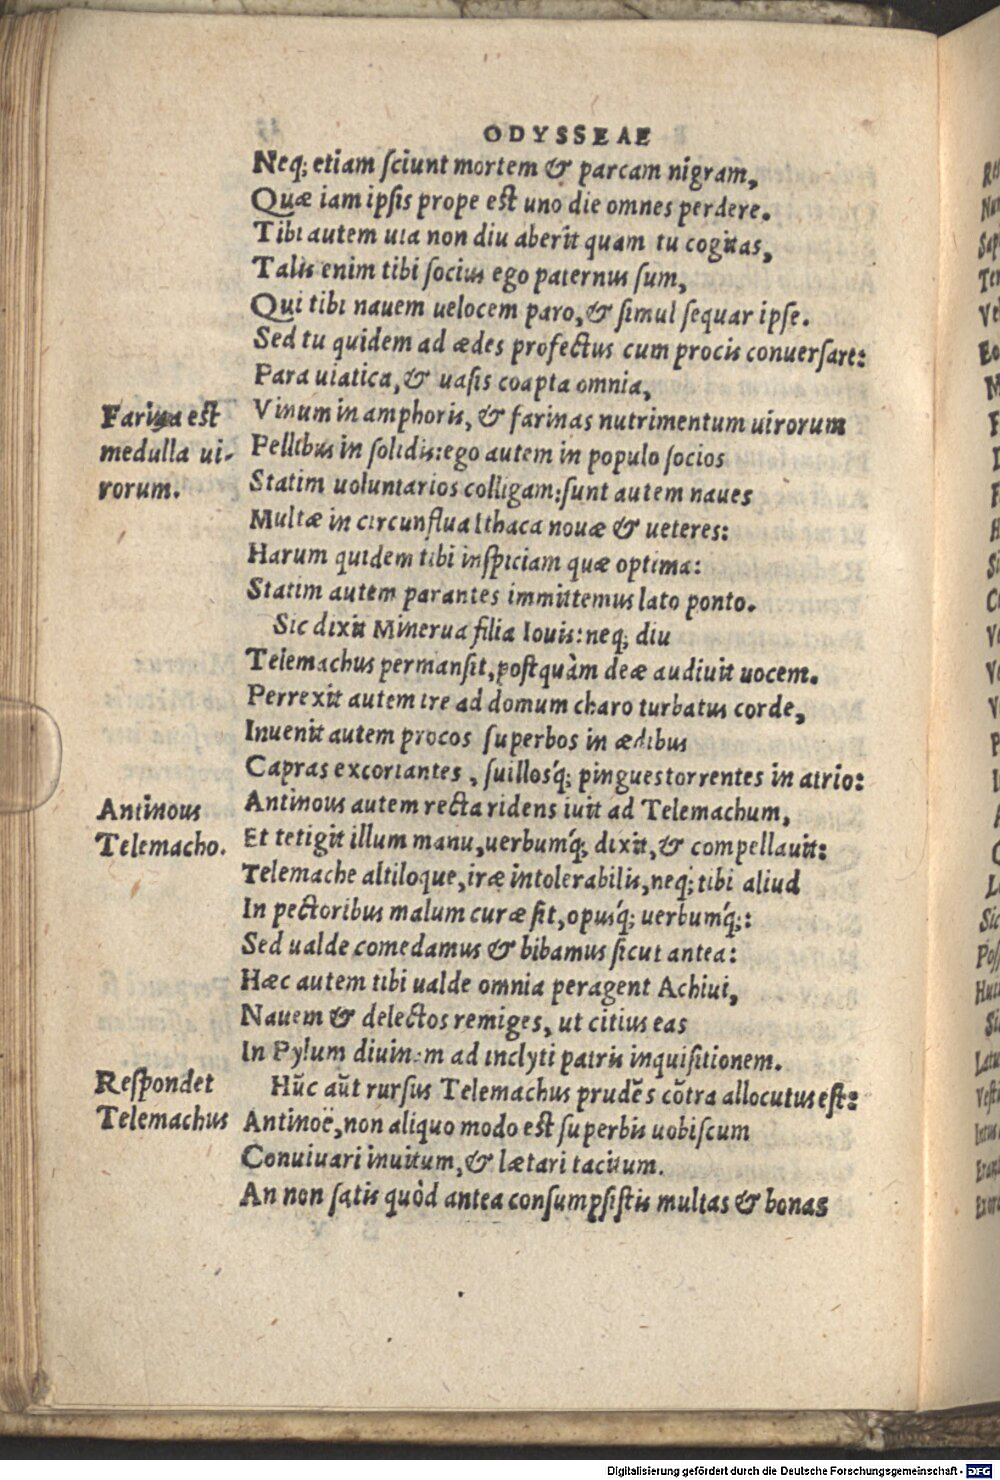 ODYSSEAE
Neq; etiam ſciunt mortem & parcam nigram,
Quæ iam ipſis prope eſt uno die omnes perdere.
Tibi autem uia non diu aberit quam tu cogitas,
Talis enim tibi ſocius ego paternus ſum,
Qui tibi nauem uelocem paro, & ſimul ſequar ipſe.
Sed tu quidem ad ædes profectus cum procis conuerſare:
Para uiatica, & uaſis coapta omnia,
Farina eſt
medulla ui-
rorum.
Vinum in amphoris, & farinas nutrimentum uirorum
Pellibus in ſolidis: ego autem in populo ſocios
Statim uoluntarios colligam: ſunt autem naues
Multæ in circunflua Ithaca nouæ & ueteres:
Harum quidem tibi inſpiciam quæ optima:
Statim autem parantes immittemus lato ponto.
Sic dixit Minerua filia Iouis: neq; diu
Telemachus permanſit, poſtquàm deæ audiuit uocem.
Perrexit autem ire ad domum charo turbatus corde,
Inuenit autem procos ſuperbos in ædibus
Capras excoriantes, ſuillosq́; pingues torrentes in atrio:
Antinous
Telemacho.
Antinous autem recta ridens iuit ad Telemachum,
Et tetigit illum manu, uerbumq́; dixit, & compellauit:
Telemache altiloque, iræ intolerabilis, neq; tibi aliud
In pectoribus malum curæ ſit, opusq́; uerbumq́;:
Sed ualde comedamus & bibamus ſicut antea:
Hæc autem tibi ualde omnia peragent Achiui,
Nauem & delectos remiges, ut citius eas
In Pylum diuinam ad inclyti patris inquiſitionem.
Reſpondet
Telemachus
Hūc aūt rurſus Telemachus prudēs cōtra allocutus eſt:
Antinoë, non aliquo modo eſt ſuperbis uobiſcum
Conuiuari inuitum, & lætari tacitum.
An non ſatis quòd antea conſumpſiſtis multas & bonas
Digitalisierung gefördert durch die Deutsche Forschungsgemeinschaft - DFG